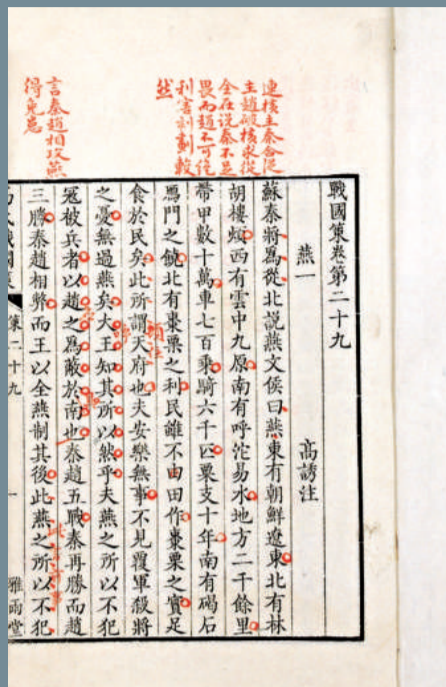 連橫主秦合從
主趙破橫求從
全在說秦不足
畏而趙不可
利害較
然
言秦趙相攻燕
得免患
戰國策卷第二十九
燕一 高誘注
蘇秦將爲從北說燕文侯曰燕東有朝鮮遼東北有林
胡樓煩西有雲中九原南有呼沱易水地方二千餘里
帶甲數十萬車七百乘騎六千匹粟支十年南有碣石
鴈門之饒北有棗栗之利民雖不田田作棗栗之實足
食於民矣此所謂天府也夫安樂無事不見覆軍殺將
之憂無過燕矣大王知其所以然乎夫燕之所以不犯
寇被兵者以趙之爲蔽於南也秦趙五戰秦再勝而趙
三勝秦趙相弊而王以全燕制其後此燕之所以不犯
第二十九 一 雅雨堂